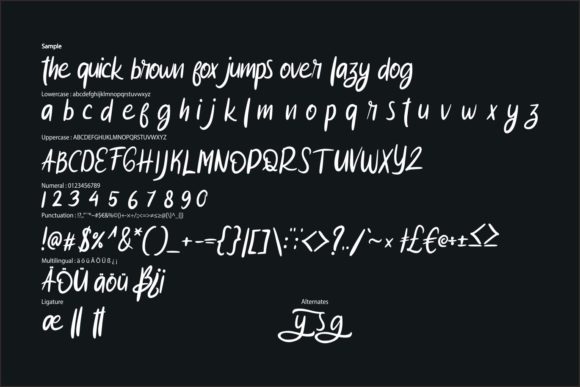 Sample
the quick brown fox jumps over lazy dog
Lowercase : abcdefghijklmnopqrstuvwxyz
a b c d e f g h i j k l m n o p q r s t u v w x y z
Uppercase : ABCDEFGHIJKLMNOPQRSTUVWXYZ
ABCDEFGHIJKLMNOPQRSTUVWXYZ
Numeral : 0123456789
1 2 3 4 5 6 7 8 9 0
Punctuation :
!@#$%^&*()_+-={}|[]\:;<>?,./`~× ł£€@±±≤≥
Multilingual : ä ö ü Ä Ö Ü ß ¿ ¡
ÄÖÜ äöü ß¿¡
Ligature
æ ll tt
Alternates
y s g